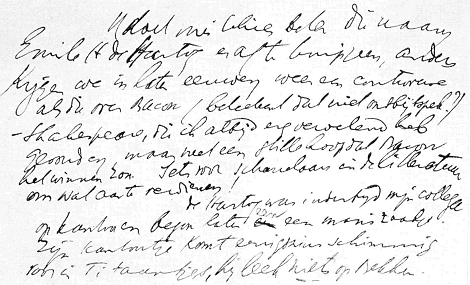 U doet misschien beter die naam
Emile H. de Hartog er af te knippen, anders
krijgen we in later eeuwen weer een controverse
als die over Bacon / betekent dat niet ontbijtspek?/
- Shakespeare, die ik altijd erg vervelend heb
gevonden, maar met een stille hoop dat Bacon
het winnen zou. Iets voor schandaal in de literatuur
om wat aan te verdienen!
de Hartog was indertijd mijn collega
op kantoor en begon later een mooi zaakje.
Zijn kantoortje komt enigszins schimmig
voor in Titaantjes, hij leek niets op Bekker.